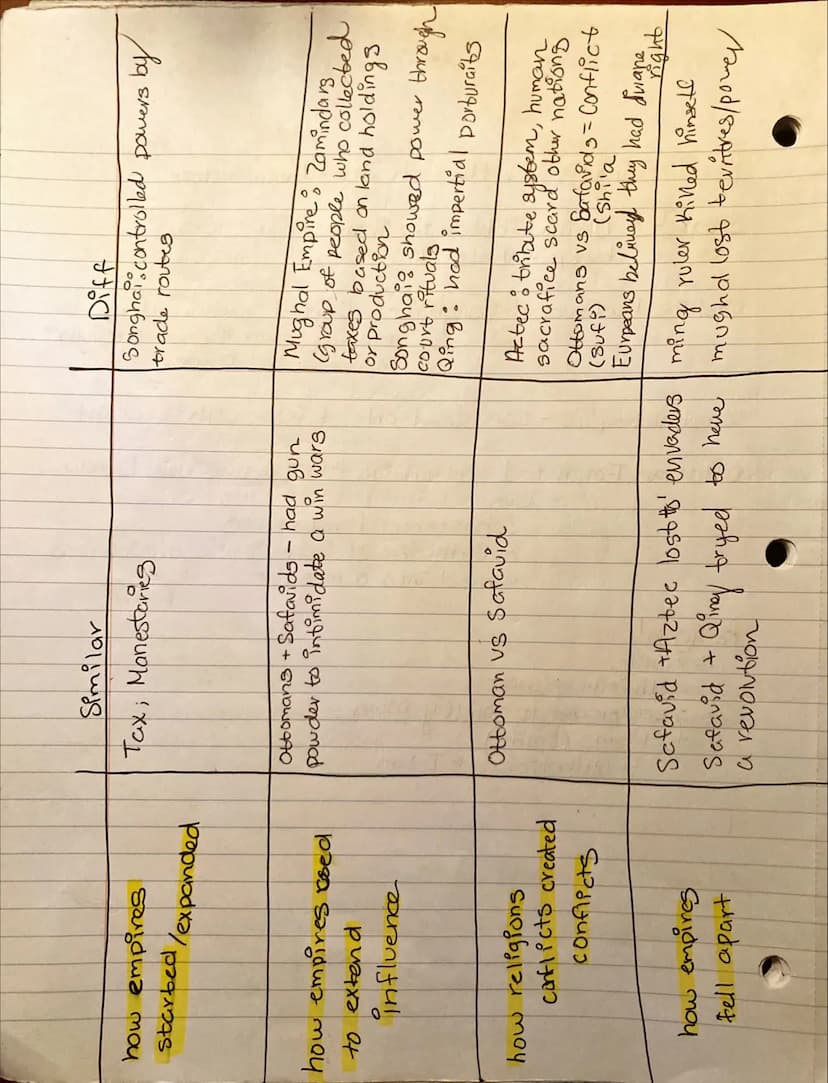 Similar
Diff
how empires
started/expanded
Tax; Monestaries
Songhai: controlled powers by
trade routes
how empires used
to extend
influence
Ottomans + Safavids - had gun
powder to intimidate a win wars
Mughal Empire: Zamindars
(group of people who collected
taxes based on land holdings
or production
Songhai: showed power through
court rituals
Qing: had impertial porturaits
how religions
conflicts created
conflicts
Ottoman vs Safavid
Aztec: tribute system, human
sacrafice scard other nations
Ottomans vs Safavids = Conflict
(sufi) (shi'a
Eurpeans believed they had divine
right
how empires
fell apart
Safavid + Aztec lost to envaders
Safavid + Qing tryed to have
a revolution
ming ruler killed himself
mughal lost tevritres/power